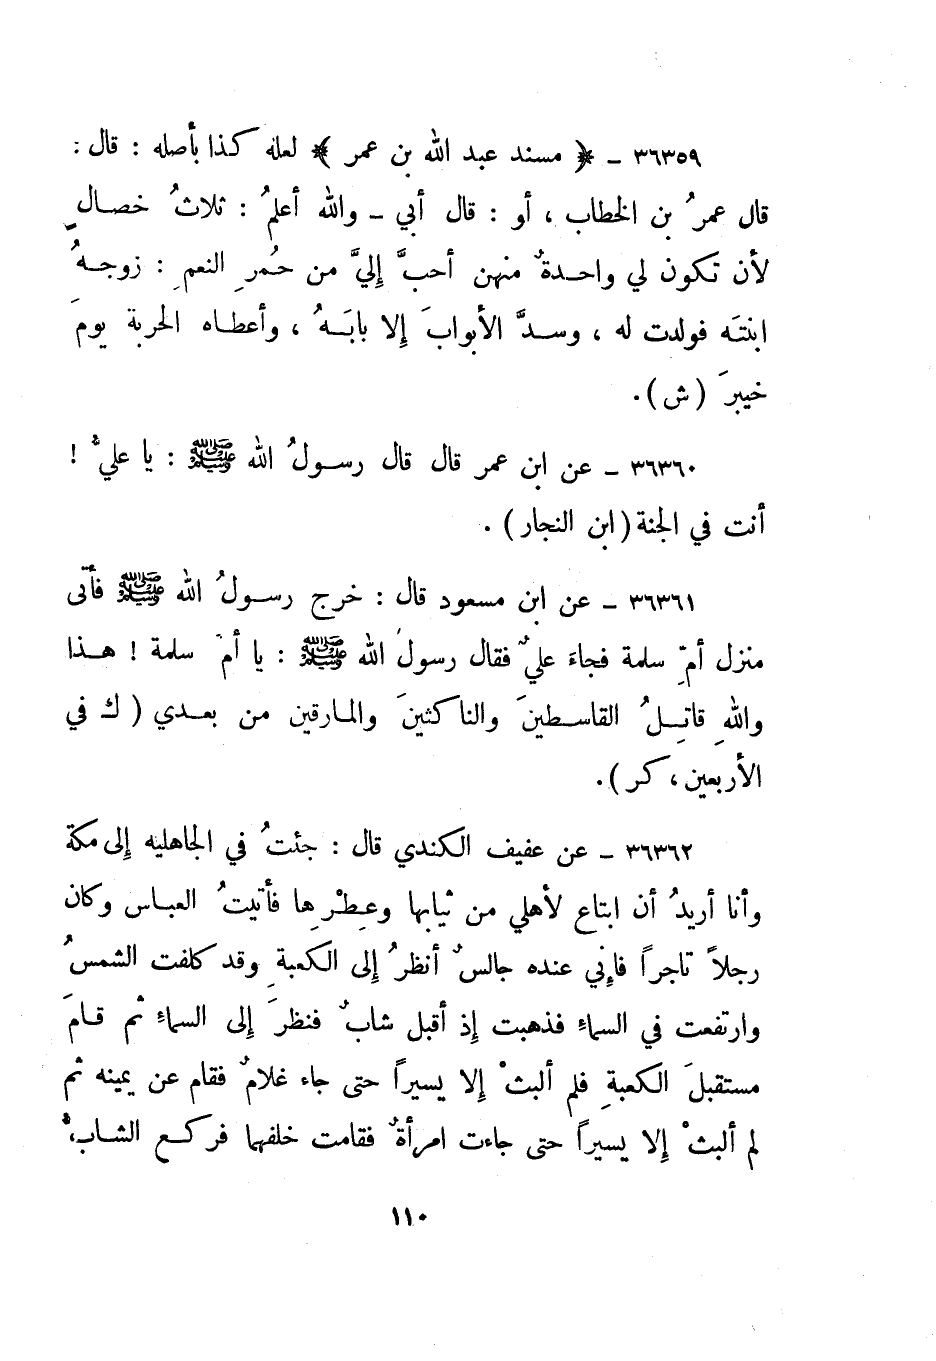 ٣٦٣٥٩ ـ ﴿ مسند عبد الله بن عمر ﴾ لعله كذا بأصله : قال :
قال عمرُ بن الخطاب ، أو : قال أبي ـ والله أعلمُ : ثلاثُ خصالٍ
لأن تكون لي واحدةٌ منهن أحبَّ إليَّ من حُمرِ النعمِ : زوجهُ
ابنتَه فولدت له ، وسدَّ الأبوابَ إلا بابَهُ ، وأعطاه الحربة يومَ
خيبرَ ( ش ) .
٣٦٣٦٠ ـ عن ابن عمر قال قال رسولُ الله ﷺ : يا عليُّ !
أنت في الجنة ( ابن النجار ) .
٣٦٣٦١ ـ عن ابن مسعود قال : خرج رسولُ الله ﷺ فأتى
منزل أمِّ سلمة فجاءَ عليٌّ فقال رسولُ الله ﷺ : يا أمَّ سلمة ! هذا
واللهِ قاتلُ القاسطينَ والناكثينَ والمارقين من بعدي ( ك في
الأربعين ، كر ) .
٣٦٣٦٢ ـ عن عفيف الكندي قال : جئتُ في الجاهليه إلى مكة
وأنا أريدُ أن ابتاع لأهلي من ثيابها وعِطْرِها فأتيتُ العباس وكان
رجلاً تاجراً فإني عنده جالسٌ أنظرُ إلى الكعبةِ وقد كلفت الشمسُ
وارتفعت في السماءِ فذهبت إذ أقبل شابٌ فنظرَ إلى السماءِ ثم قامَ
مستقبلَ الكعبةِ فلم ألبثْ إلا يسيراً حتى جاء غلامٌ فقام عن يمينه ثم
لم ألبثْ إلا يسيراً حتى جاءت امرأةٌ فقامت خلفهما فركع الشاب،ُ
١١٠